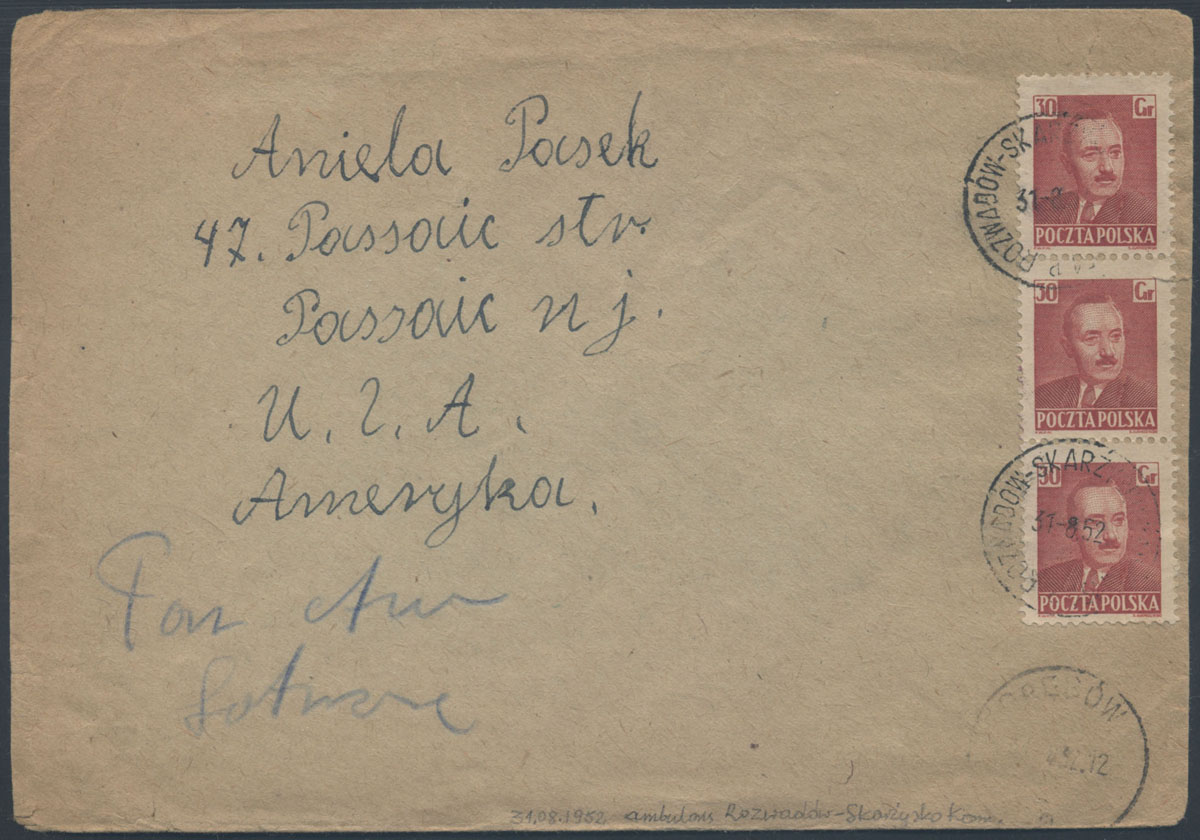 Aniela Pasek
47. Passaic str.
Passaic n j.
U. S. A.
Ameryka.
Par Avn
30 Gr
POCZTA POLSKA
30 Gr
POCZTA POLSKA
30 Gr
POCZTA POLSKA
ROZWADÓW-SKAR
31-8
ROZWADÓW-SKARŻ
31-8.52
31.08.1952, ambulans Rozwadów-Skarżysko Kam.